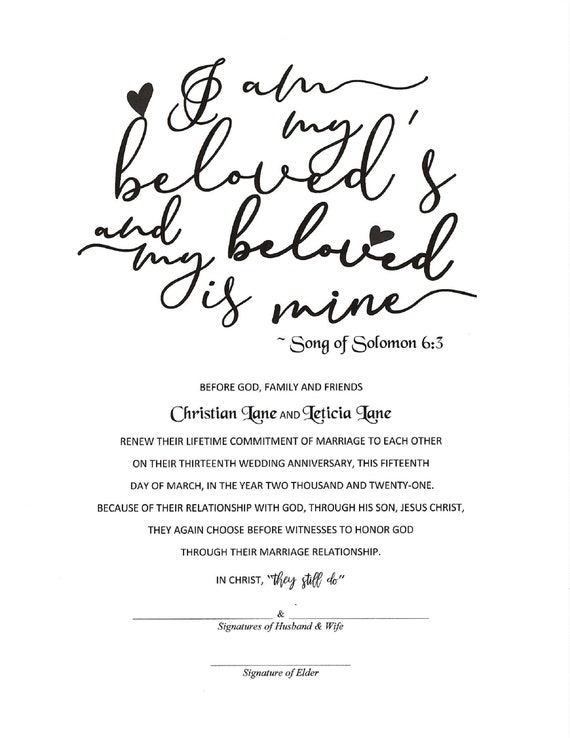 I am
my
beloved's
and
my beloved
is mine
~ Song of Solomon 6:3
BEFORE GOD, FAMILY AND FRIENDS
Christian Lane AND Leticia Lane
RENEW THEIR LIFETIME COMMITMENT OF MARRIAGE TO EACH OTHER
ON THEIR THIRTEENTH WEDDING ANNIVERSARY, THIS FIFTEENTH
DAY OF MARCH, IN THE YEAR TWO THOUSAND AND TWENTY-ONE.
BECAUSE OF THEIR RELATIONSHIP WITH GOD, THROUGH HIS SON, JESUS CHRIST,
THEY AGAIN CHOOSE BEFORE WITNESSES TO HONOR GOD
THROUGH THEIR MARRIAGE RELATIONSHIP.
IN CHRIST, "they still do"
&
Signatures of Husband & Wife
Signature of Elder